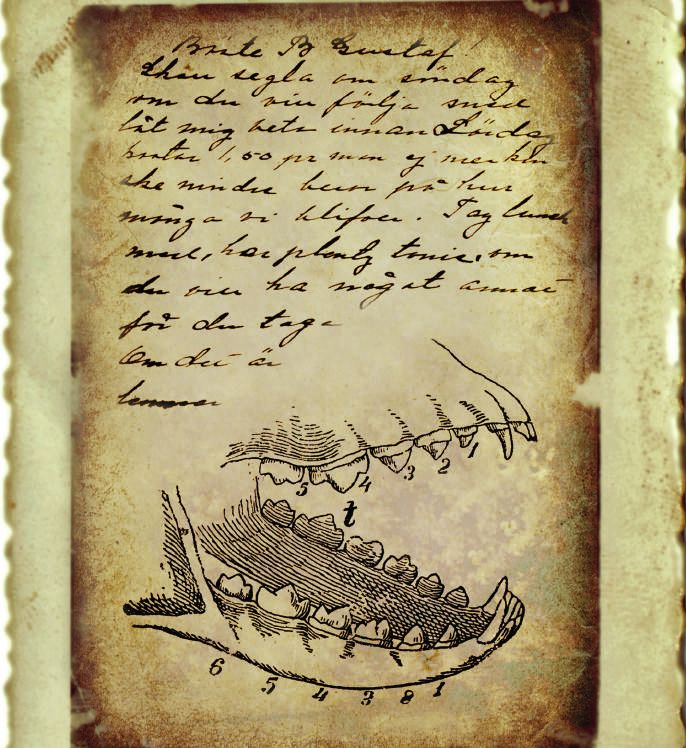 Bäste Br Gustaf!
Skall segla om söndag
om du vill följa med
låt mig veta innan Lördag
kostar 1,50 pr man ej mer kan
ske mindre beror på hur
många vi blifver. Tag lunch
med, har plenty tonic, om
du vill ha något annat
får du taga
Om det är
5 4 3 2 1
t
6 5 4 3 2 1